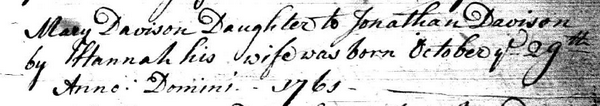 Mary Davison Daughter to Jonathan Davison
by Hannah his wife was born October yᵉ 29th
Anno: Domini - 1761 -